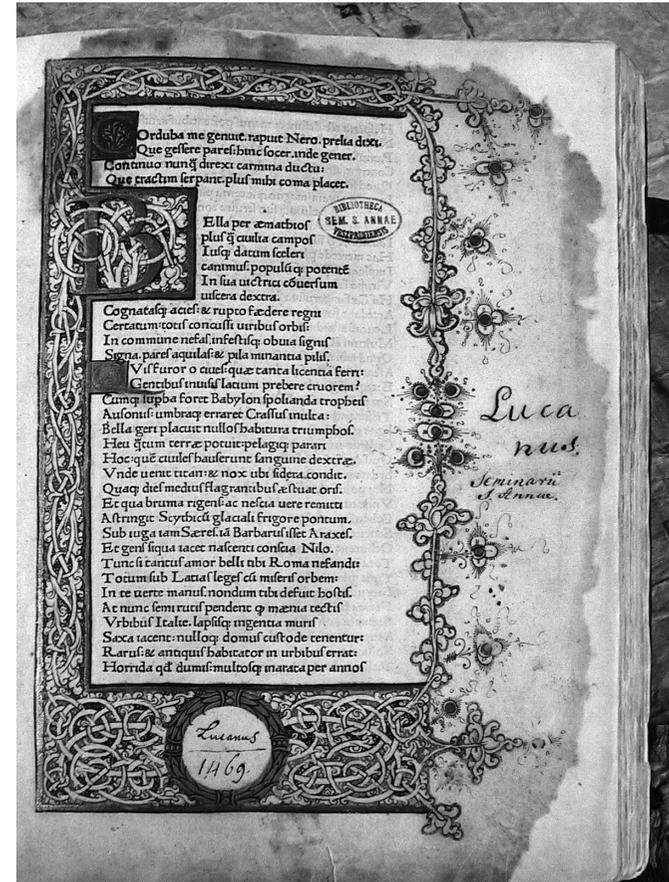 Corduba me genuit. rapuit Nero. prelia dixi.
Que gessere pares: hinc socer. inde gener.
Continuo nunq̄ direxi carmina ductu:
Que tractim serpant. plus mihi coma placet.
BElla per æmathios
plus q̄ ciuilia campos
Iusq; datum sceleri
canimus. populū q; potentē
In sua uictrici cōuersum
uiscera dextra.
Cognatasq; acies: & rupto fædere regni
Certatum: totis concussi uiribus orbis:
In commune nefas. infestisq; obuia signis
Signa. pares aquilas: & pila minantia pilis.
Quis furor o ciues: quæ tanta licentia ferri:
Gentibus inuisis latium prebere cruorem?
Cumq; supba foret Babylon spolianda tropheis
Ausoniis: umbraq; erraret Crassus inulta:
Bella geri placuit nullos habitura triumphos.
Heu q̄tum terræ potuit: pelagiq; parari
Hoc: quē ciuiles hauserunt sanguine dextræ.
Vnde uenit titan: & nox ubi sidera condit.
Quaq; dies medius flagrantibus æstuat oris.
Et qua bruma rigens: ac nescia uere remitti
Astringit Scythicū glaciali frigore pontum.
Sub iuga iam Særes. iā Barbarus isset Araxes.
Et gens siqua iacet nascenti conscia Nilo.
Tunc si tantus amor belli tibi Roma nefandi:
Totum sub Latias leges cū miseris orbem:
In te uerte manus. nondum tibi defuit hostis.
At nunc semirutis pendent q mænia tectis
Vrbibus Italie. lapsisq; ingentia muris
Saxa iacent: nulloq; domus custode tenentur:
Rarus: & antiquis habitator in urbibus errat:
Horrida qđ dumis: multosq; inarata per annos
BIBLIOTHECA
SEM. S. ANNAE
VESZPRIMIENSIS
Luca
nus.
Seminarii
S. Annae.
Lucanus
1469.